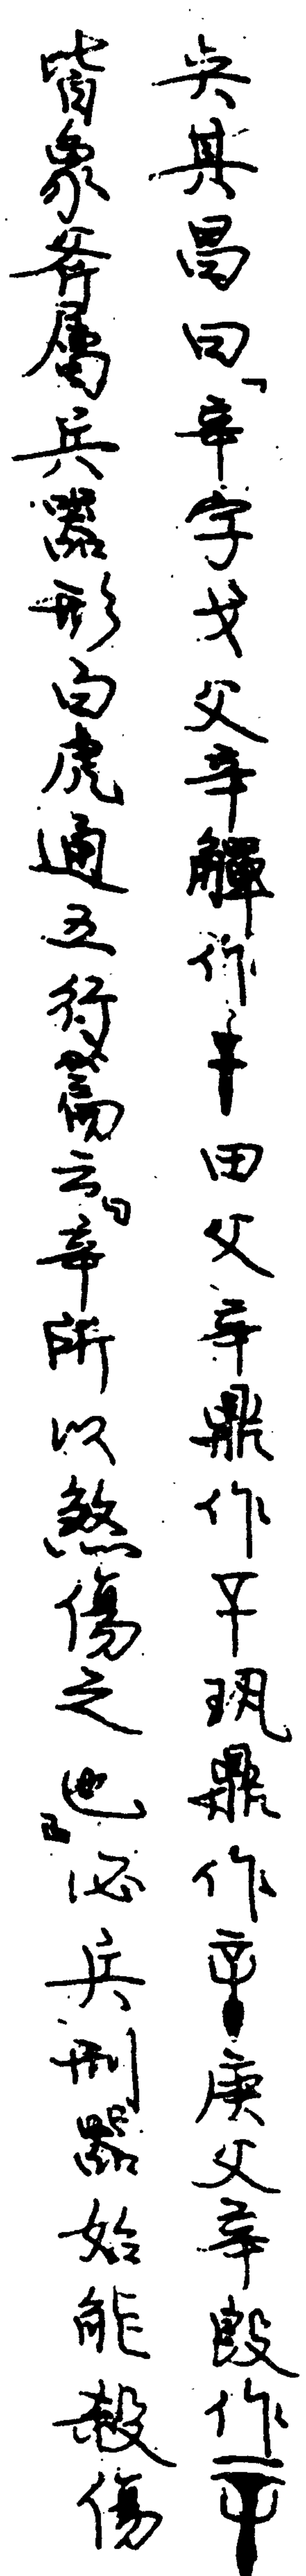 吳其昌曰「辛字戈父辛觶作田父辛鼎作䢅鼎作庚父辛𣪘作
皆象斧屬兵器形白虎通五行篇云『辛所以煞傷之也』必兵刑器始能殺傷